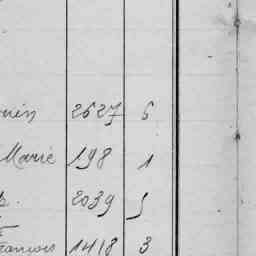 2627 6
Marie 198 1
2039 5
François 1418 3